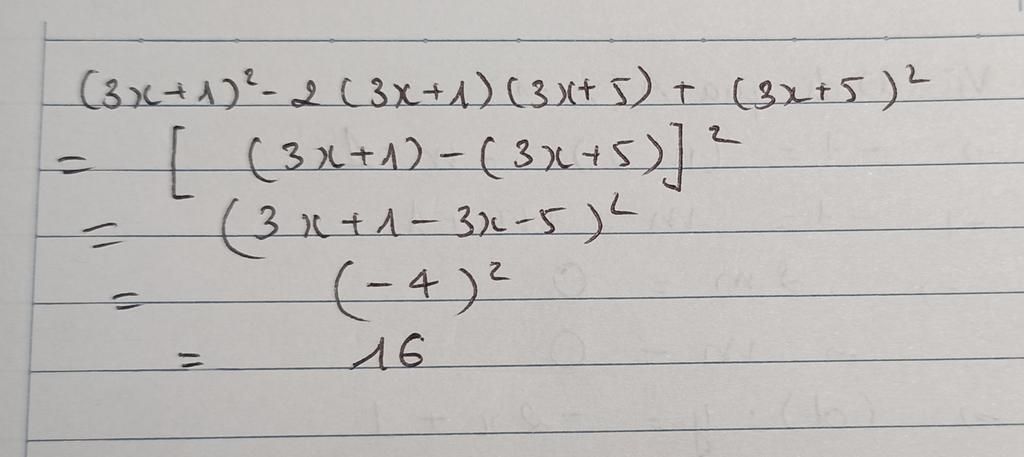 (3x+1)² - 2(3x+1)(3x+5) + (3x+5)²
= [(3x+1)-(3x+5)]²
= (3x+1-3x-5)²
= (-4)²
= 16